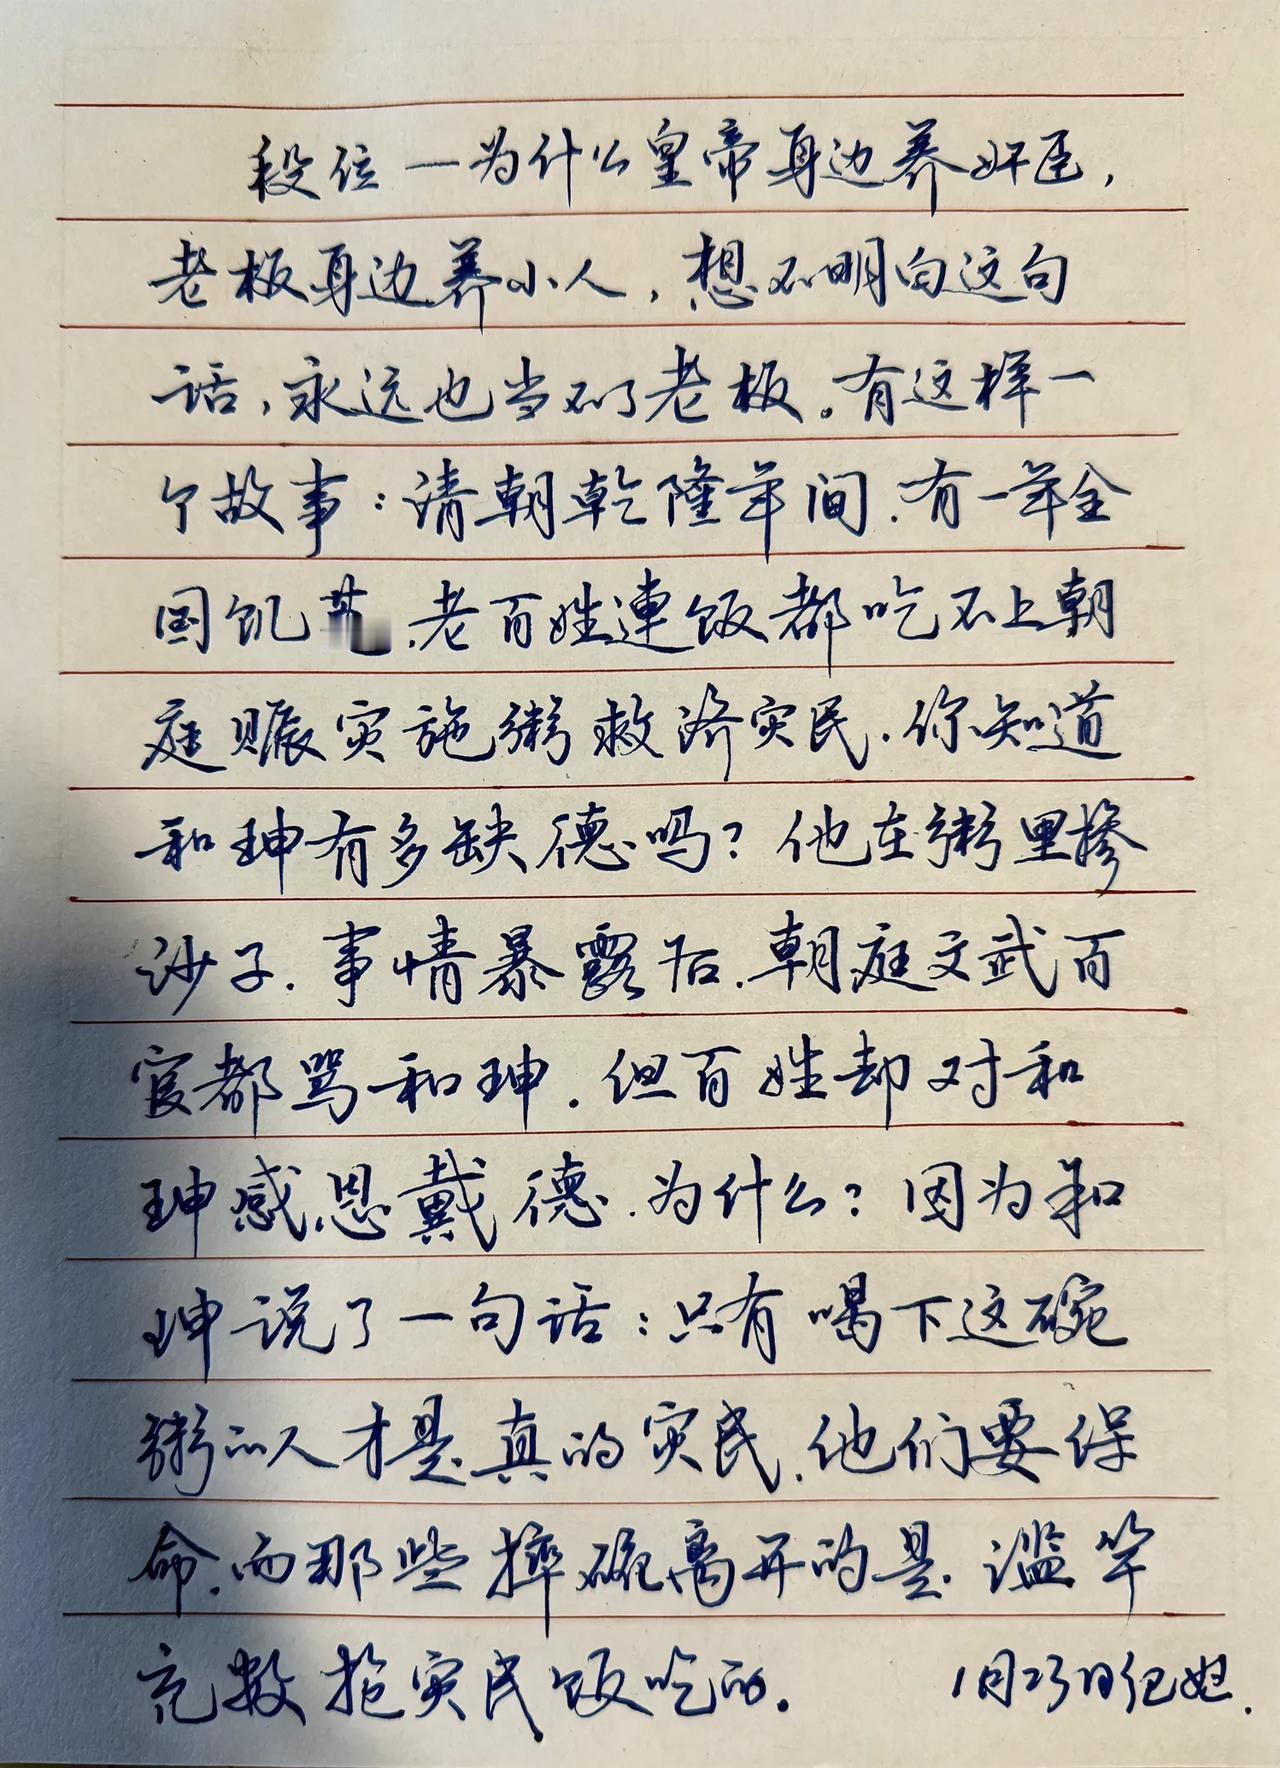 段位一为什么皇帝身边养奸臣,
老板身边养小人,想不明白这句
话,永远也当不了老板。有这样一
个故事:请朝乾隆年间.有一年全
国饥荒.老百姓連饭都吃不上朝
庭赈灾施粥救济灾民.你知道
和珅有多缺德吗?他在粥里掺
沙子.事情暴露后.朝庭文武百
官都骂和珅.但百姓却对和
珅感恩戴德.为什么?因为和
珅说了一句话:只有喝下这碗
粥的人才是真的灾民.他们要保
命.而那些摔碗离开的是滥竽
充数抢灾民饭吃的.
1月23日